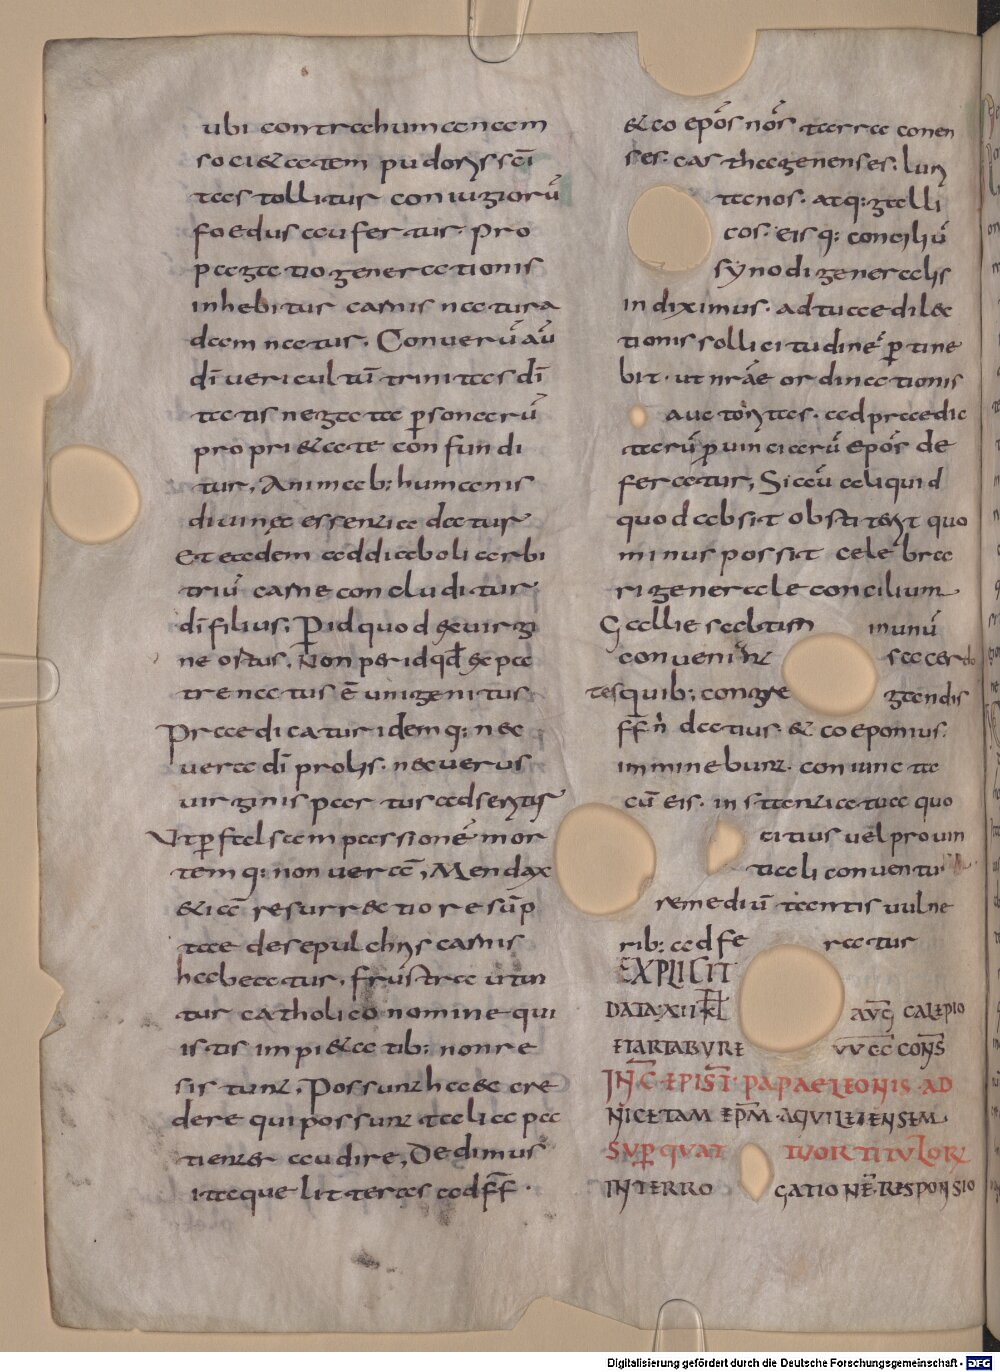 ubi contra humanam
soci&atem pudoris scī
tas tollitur coniugiorū
foedus aufertur. pro
pagatio generationis
inhebitur carnis natura
damnatur. Conuerū aū
dī uericultū trinitas dī
tatis negata p̲sonarū
propri&ate confundi
tur, Animab: humanis
diuinae essentiae datur
Et eadem ad diaboli arbi
triū carne concluditur
dī filius; P̲ id quod de uirgi
ne ortus, Non per id qđ de pa
tre natus ē unigenitus
Praedicatur idemq: nec
uera dī prolis. nec uerus
uirginis partus adseritur
Ut p̲ falsam passionē mor
temq: non uerā, Mendax
&iā resurrectio resūp
tae de sepulchris carnis
habeatur, frustra utun
tur catholico nomine qui
istis impi&atib: non re
sistunt, Possunt haec cre
dere qui possunt talia pa
tienter audire, Dedimus
itaque litteras ad ff̄
&co epōs nōs tarraconen
ses. cartagenenses. lusi
tanos. atq: galli
cos. eisq: conciliū
synodi generalis
indiximus. ad tuae dilec
tionis sollicitudinē p̲tine
bit. ut nrāe ordinationis
auctoritas. ad praedic
tarū p̲uinciarū epōs de
feratur, Si aū aliquid
quod absit obstiterit quo
minus possit celebra
ri generale concilium
Galliae saltim in unū
conueniant sacerdo
tes quib: congregandis
ff̄ n̄ datius &coeponius.
imminebunt. coniuncta
cū eis. instantia tua quo
citius uel prouin
tiali conuentu
remediū tantis uulne
rib: adferatur
EXPLICIT
DATA XII KL AUG CALEPIO
ETIARTABURE VV CC CONS̄
INC̄ EPIST̄ PAPAE LEONIS AD
NICETAM EPM̄ AQUILEIENSEM
SUP̲ QUATTUOR TITULOR
INTERROGATIONĒ RESPONSIO
Digitalisierung gefördert durch die Deutsche Forschungsgemeinschaft - DFG